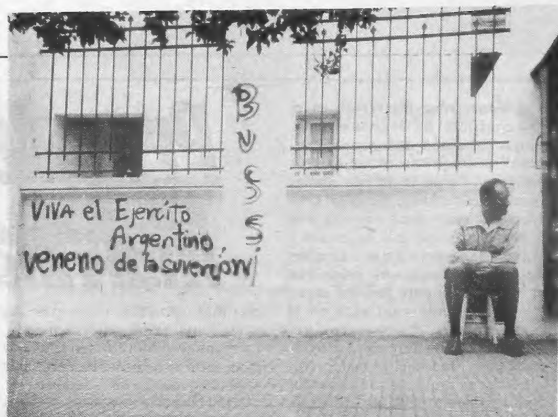 BUSSI
VIVA el Ejercito
Argentino,
veneno de la suvercion